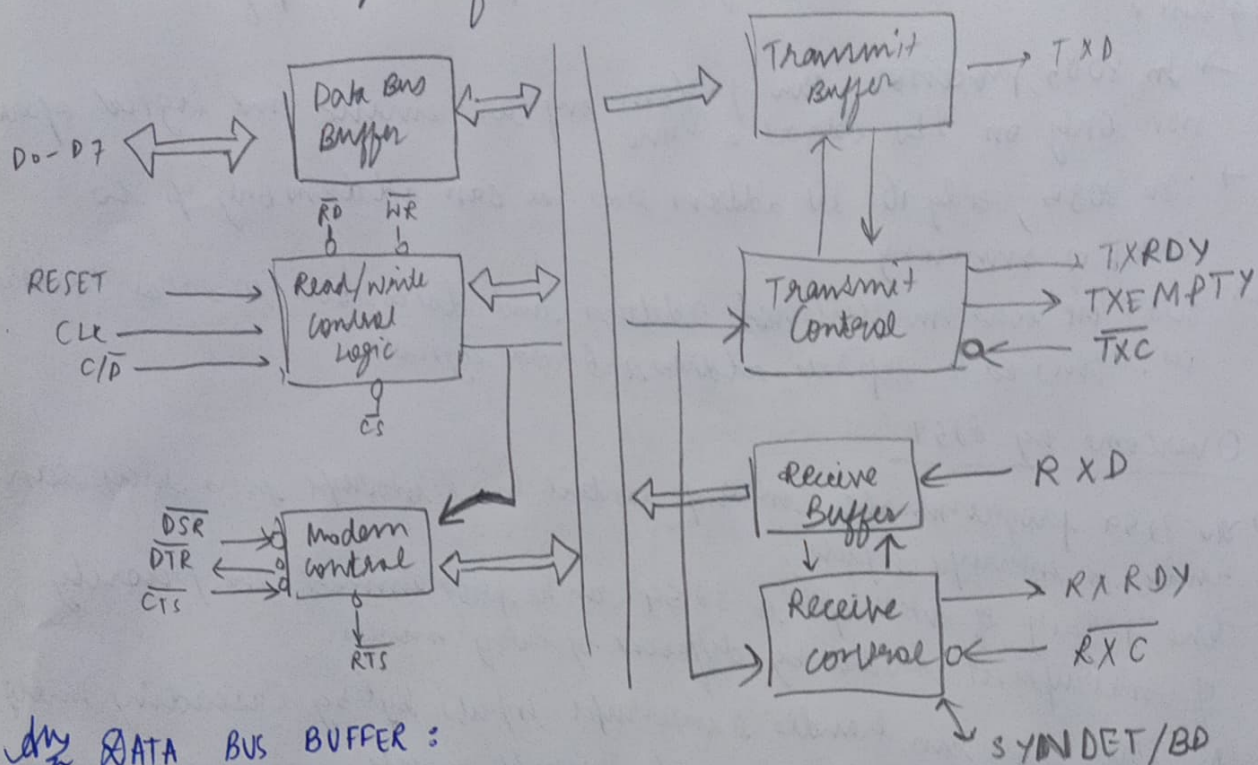 Data Bus
Buffer
D0-D7
R̅D̅
W̅R̅
RESET
CLK
C/D̅
Read/write
Control
Logic
C̅S̅
D̅S̅R̅
D̅T̅R̅
C̅T̅S̅
Modem
control
R̅T̅S̅
Transmit
Buffer
TXD
Transmit
Control
TXRDY
TXEMPTY
T̅X̅C̅
Receive
Buffer
RXD
Receive
control
RXRDY
R̅X̅C̅
SYNDET/BD
DATA BUS BUFFER :